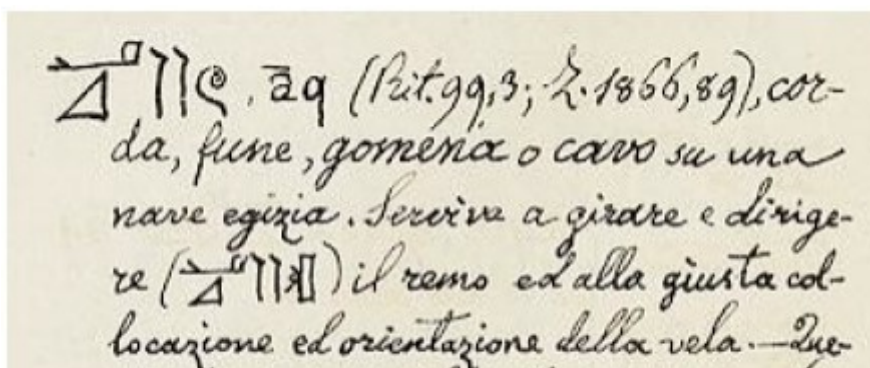 āq (Rit. 99,3; Z. 1866,89), cor-
da, fune, gomena o cavo su una
nave egizia. Serviva a girare e dirige-
re ( ) il remo ed alla giusta col-
locazione ed orientazione della vela. — Que-